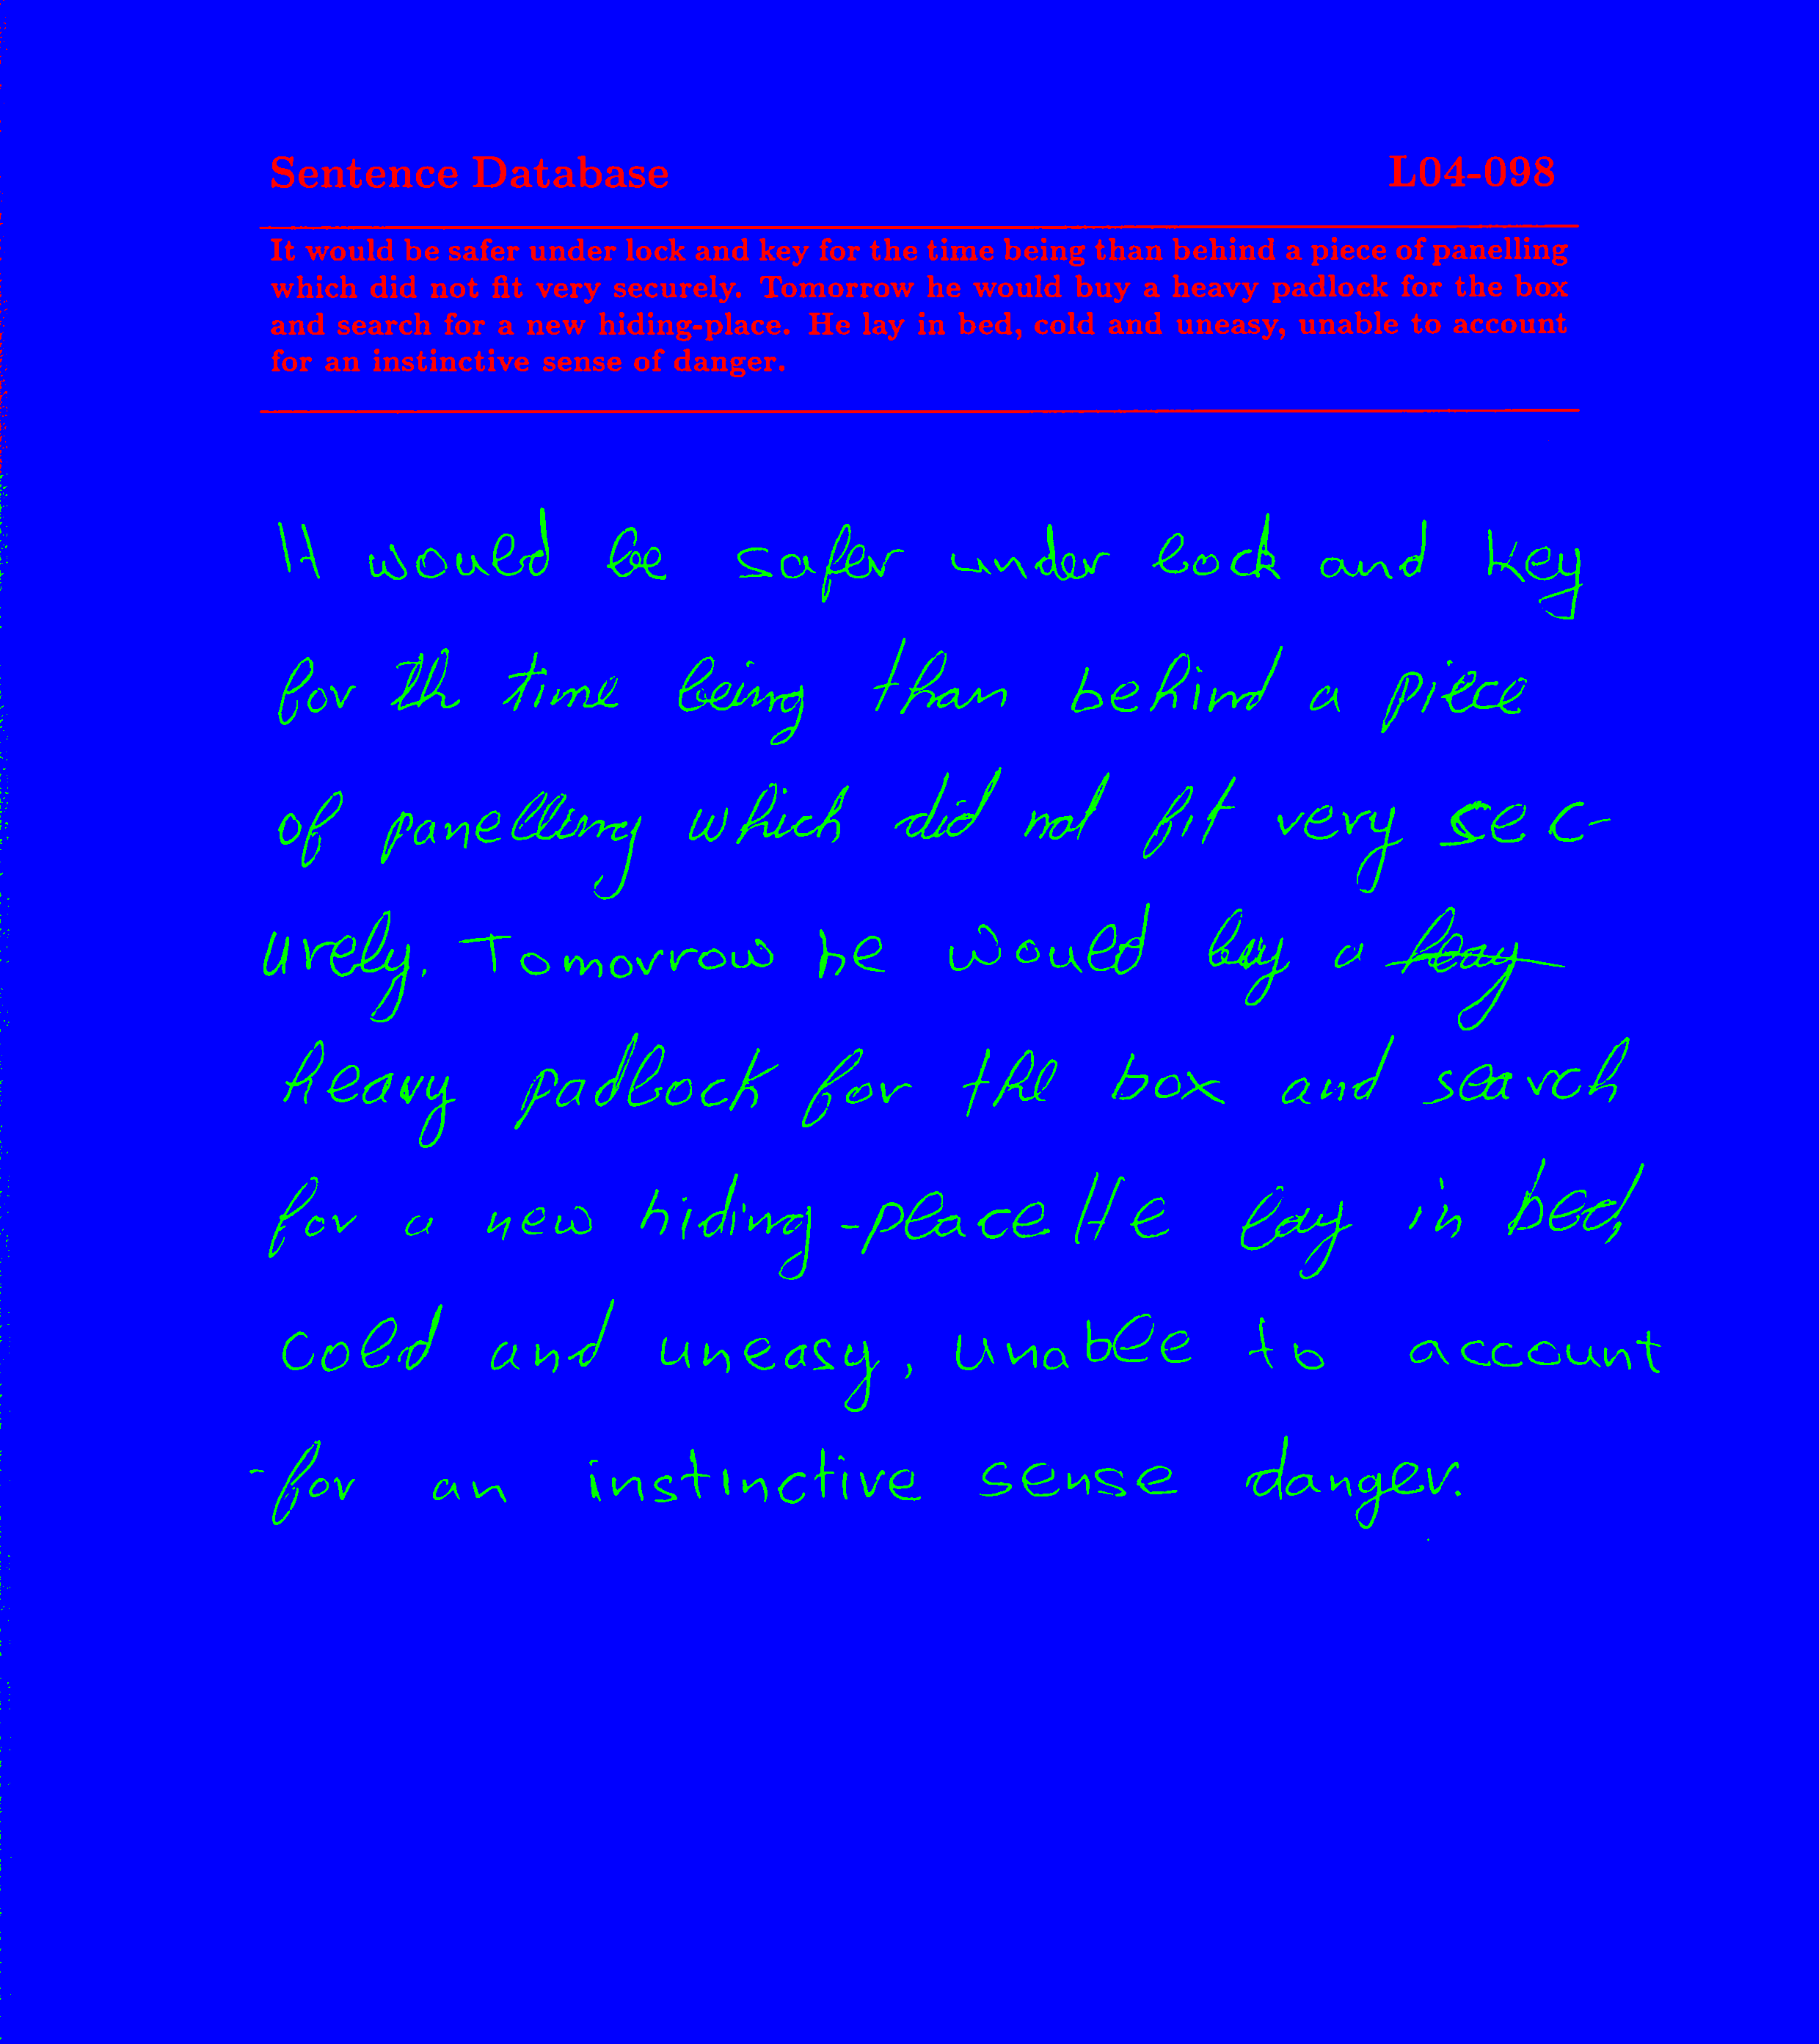 Sentence Database L04-098
It would be safer under lock and key for the time being than behind a piece of panelling
which did not fit very securely. Tomorrow he would buy a heavy padlock for the box
and search for a new hiding-place. He lay in bed, cold and uneasy, unable to account
for an instinctive sense of danger.
It would be safer under lock and key
for th time being than behind a piece
of panelling which did not fit very sec-
urely. Tomorrow he would buy a heay
heavy padlock for the box and search
for a new hiding-place He lay in bed,
cold and uneasy, unable to account
for an instinctive sense danger.